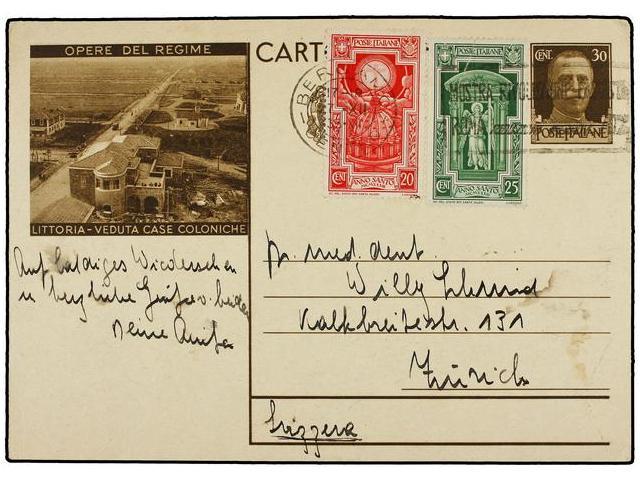 OPERE DEL REGIME
LITTORIA - VEDUTA CASE COLONICHE
Auf baldiges Wiedersehen
u herzliche Grüsse v. beiden
Deine
CART
BER
POSTE ITALIANE
ANNO SANTO
CENT 20
POSTE ITALIANE
ANNO SANTO
CENT 25
CENT. 30
POSTE ITALIANE
MOSTRA
ROMA
Dr. med. dent.
Willy Schmid
Kalkbreitestr. 131
Zürich
Svizzera